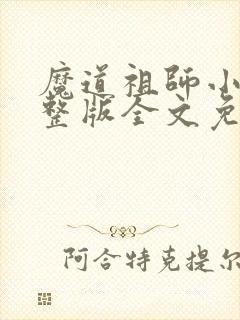 魔道祖师小
整版全文免
阿合特克提尔